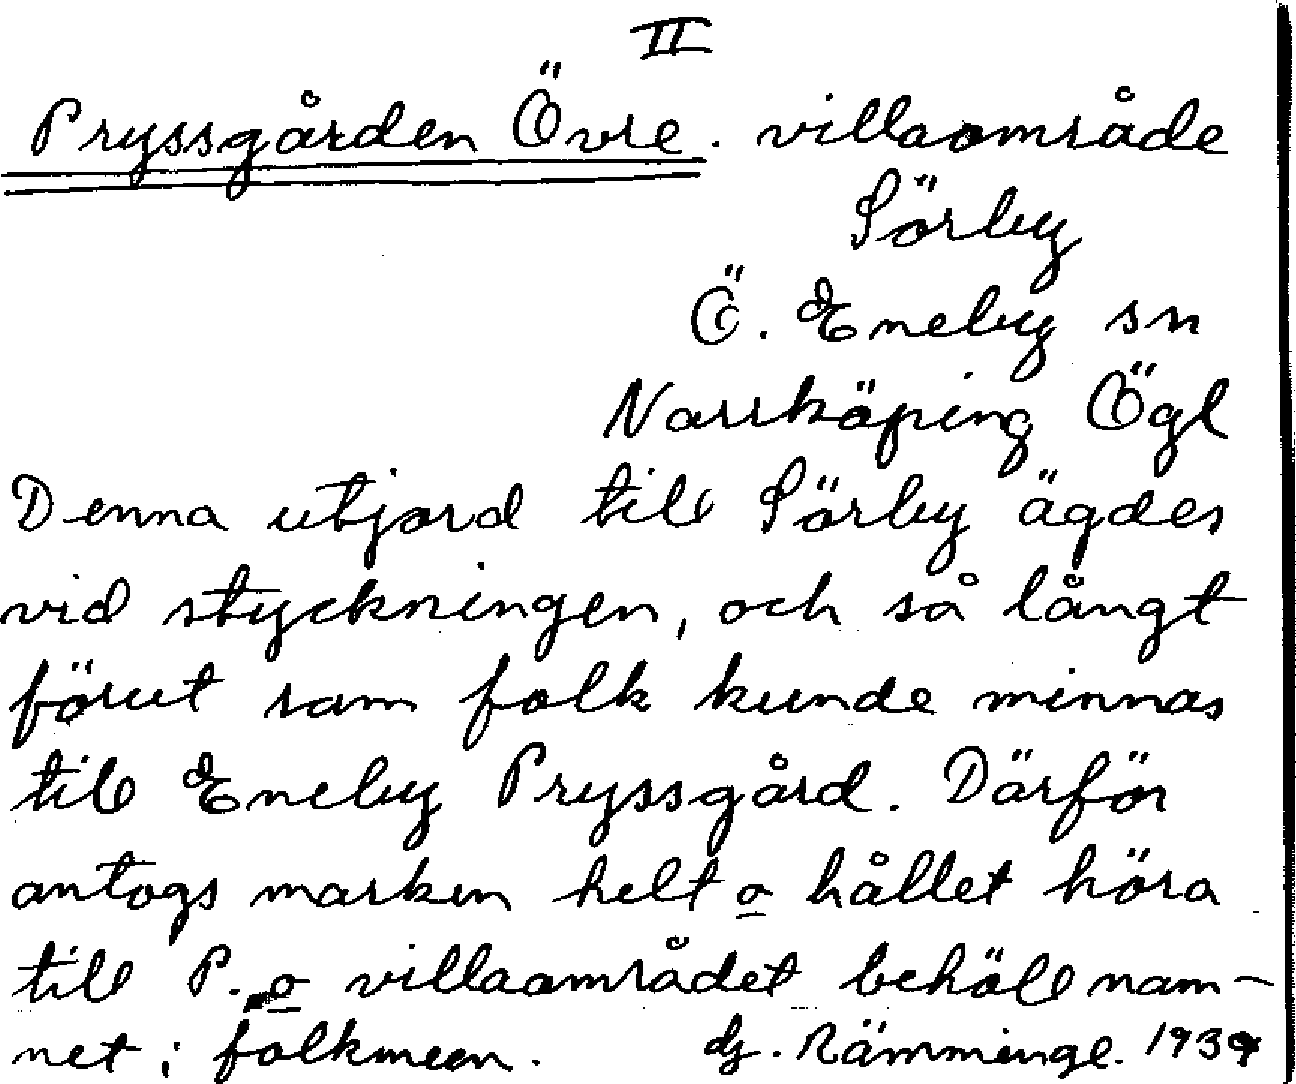 II
Pryssgården Övre. villaområde
Sörby
Ö. Eneby sn
Norrköping Ögl
Denna utjord till Sörby ägdes
vid styckningen, och så långt
förut som folk kunde minnas
till Eneby Pryssgård. Därför
antogs marken helt o hållet höra
till P. o villaområdet behöll nam-
net i folkmun. dj. Rämminge. 1939